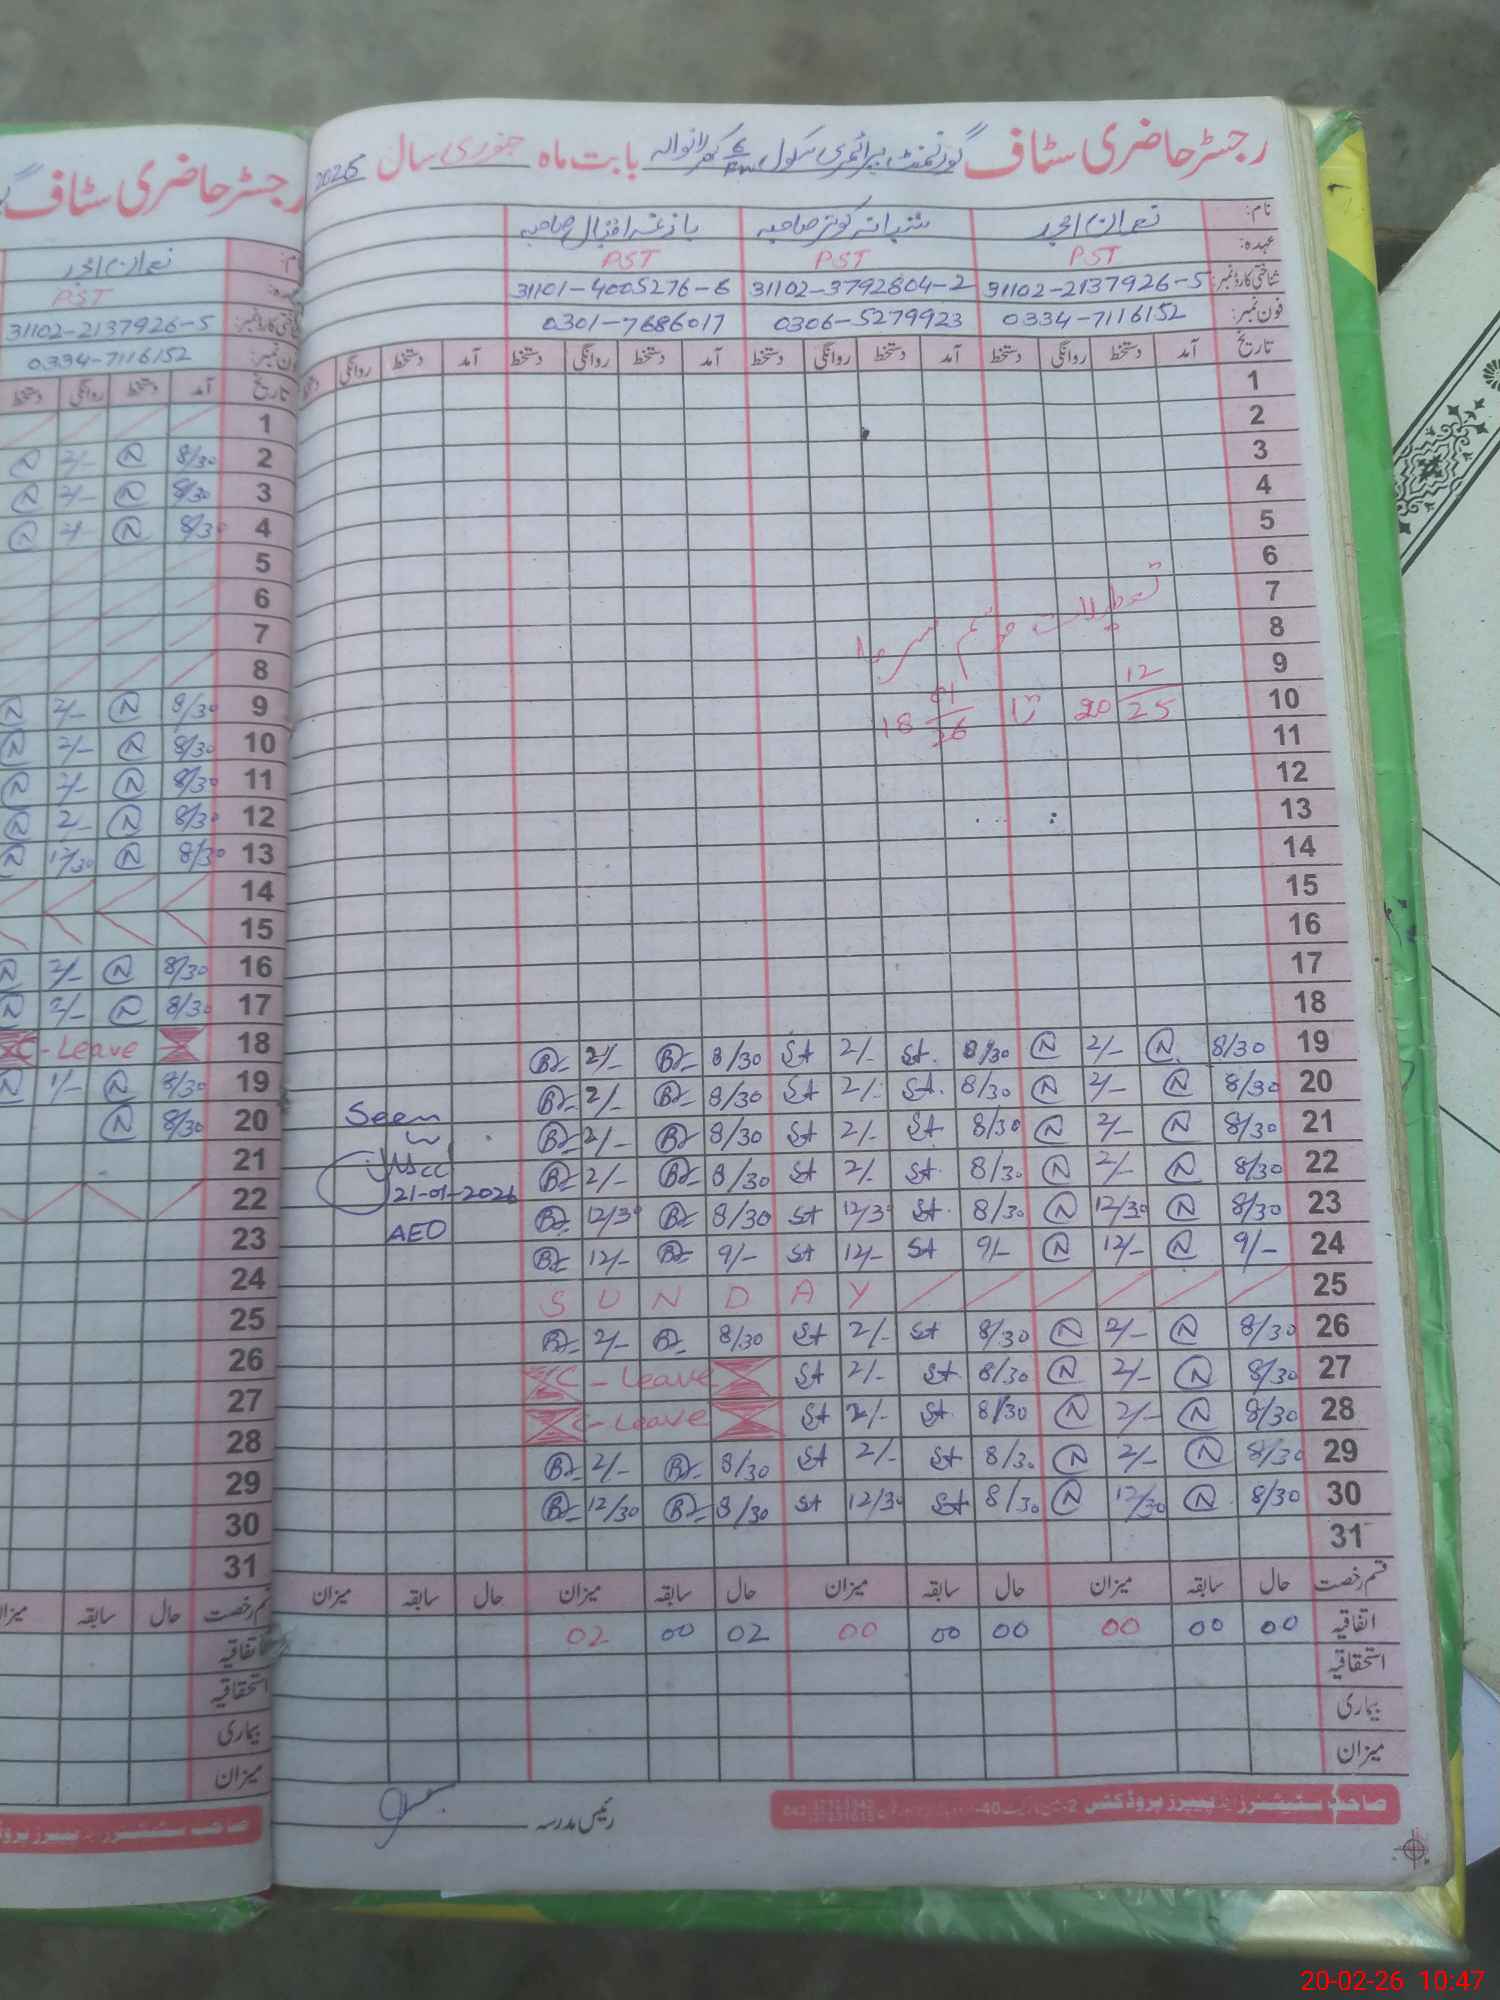 رجسٹر حاضری سٹاف گورنمنٹ پرائمری سکول بابت ماہ جنوری سال 2026
نام: نعمان امجد شبانہ کوثر صاحبہ بازغہ اقبال صاحبہ
عہدہ: PST PST PST
شناختی کارڈ نمبر: 31102-2137926-5 31102-3792804-2 31101-4005276-6
فون نمبر: 0334-7116152 0306-5279923 0301-7686017
تاریخ آمد دستخط روانگی دستخط آمد دستخط روانگی دستخط آمد دستخط روانگی دستخط آمد دستخط روانگی دستخط
1
2
3
4
5
6
7 تعطیلات موسم سرما
8
9
10 20 12/25 تا 18 01/26
11
12
13
14
15
16
17
18
19 8/30 N 2/- N 8/30 St 2/- St 8/30 B 2/- B
20 8/30 N 2/- N 8/30 St 2/- St 8/30 B 2/- B
21 8/30 N 2/- N 8/30 St 2/- St 8/30 B 2/- B
22 8/30 N 2/- N 8/30 St 2/- St 8/30 B 2/- B
23 8/30 N 12/30 N 8/30 St 12/30 St 8/30 B 12/30 B
24 9/- N 12/- N 9/- St 12/- St 9/- B 12/- B
25 SUNDAY
26 8/30 N 2/- N 8/30 St 2/- St 8/30 B 2/- B
27 8/30 N 2/- N 8/30 St 2/- St C-Leave
28 8/30 N 2/- N 8/30 St 2/- St C-Leave
29 8/30 N 2/- N 8/30 St 2/- St 8/30 B 2/- B
30 8/30 N 12/30 N 8/30 St 12/30 St 8/30 B 12/30 B
31
Seen
21-01-2026
AEO
قسم رخصت حال سابقہ میزان حال سابقہ میزان حال سابقہ میزان حال سابقہ میزان
اتفاقیہ 00 00 00 00 00 00 02 00 02
استحقاقیہ
بیماری
میزان
رئیس مدرسہ
صاحب سٹیشنرز اینڈ پیپرز پروڈکٹس
رجسٹر حاضری سٹاف
نعمان امجد
PST
31102-2137926-5
فون نمبر: 0334-7116152
تاریخ آمد دستخط روانگی دستخط
1
2 8/30 N 2/- N
3 8/30 N 2/- N
4 8/30 N 2/- N
5
6
7
8
9 8/30 N 2/- N
10 8/30 N 2/- N
11 8/30 N 2/- N
12 8/30 N 2/- N
13 8/30 N 12/30 N
14
15
16 8/30 N 2/- N
17 8/30 N 2/- N
18 C-Leave
19 8/30 N 1/- N
20 8/30 N
21
22
23
24
25
26
27
28
29
30
31
قسم رخصت حال سابقہ میزان
اتفاقیہ
استحقاقیہ
بیماری
میزان
صاحب سٹیشنرز اینڈ پیپرز
20-02-26 10:47